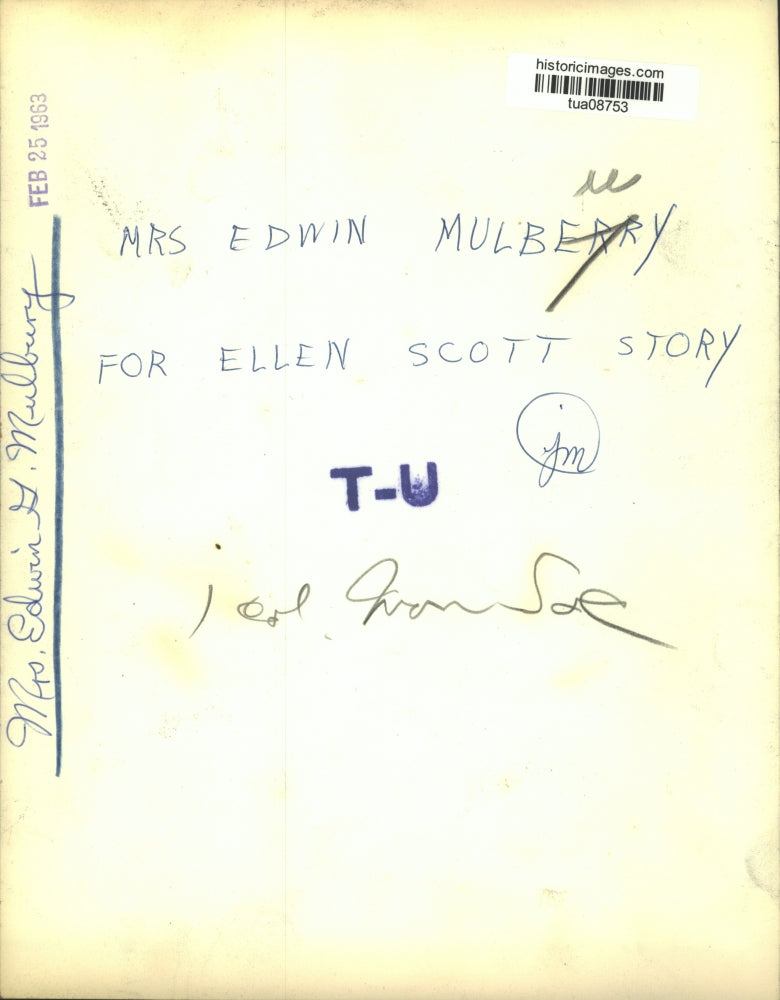 historicimages.com
tua08753
FEB 25 1963
u
MRS EDWIN MULBERRY
FOR ELLEN SCOTT STORY
jm
T-U
1 col.
Mrs. Edwin G. Mulbury